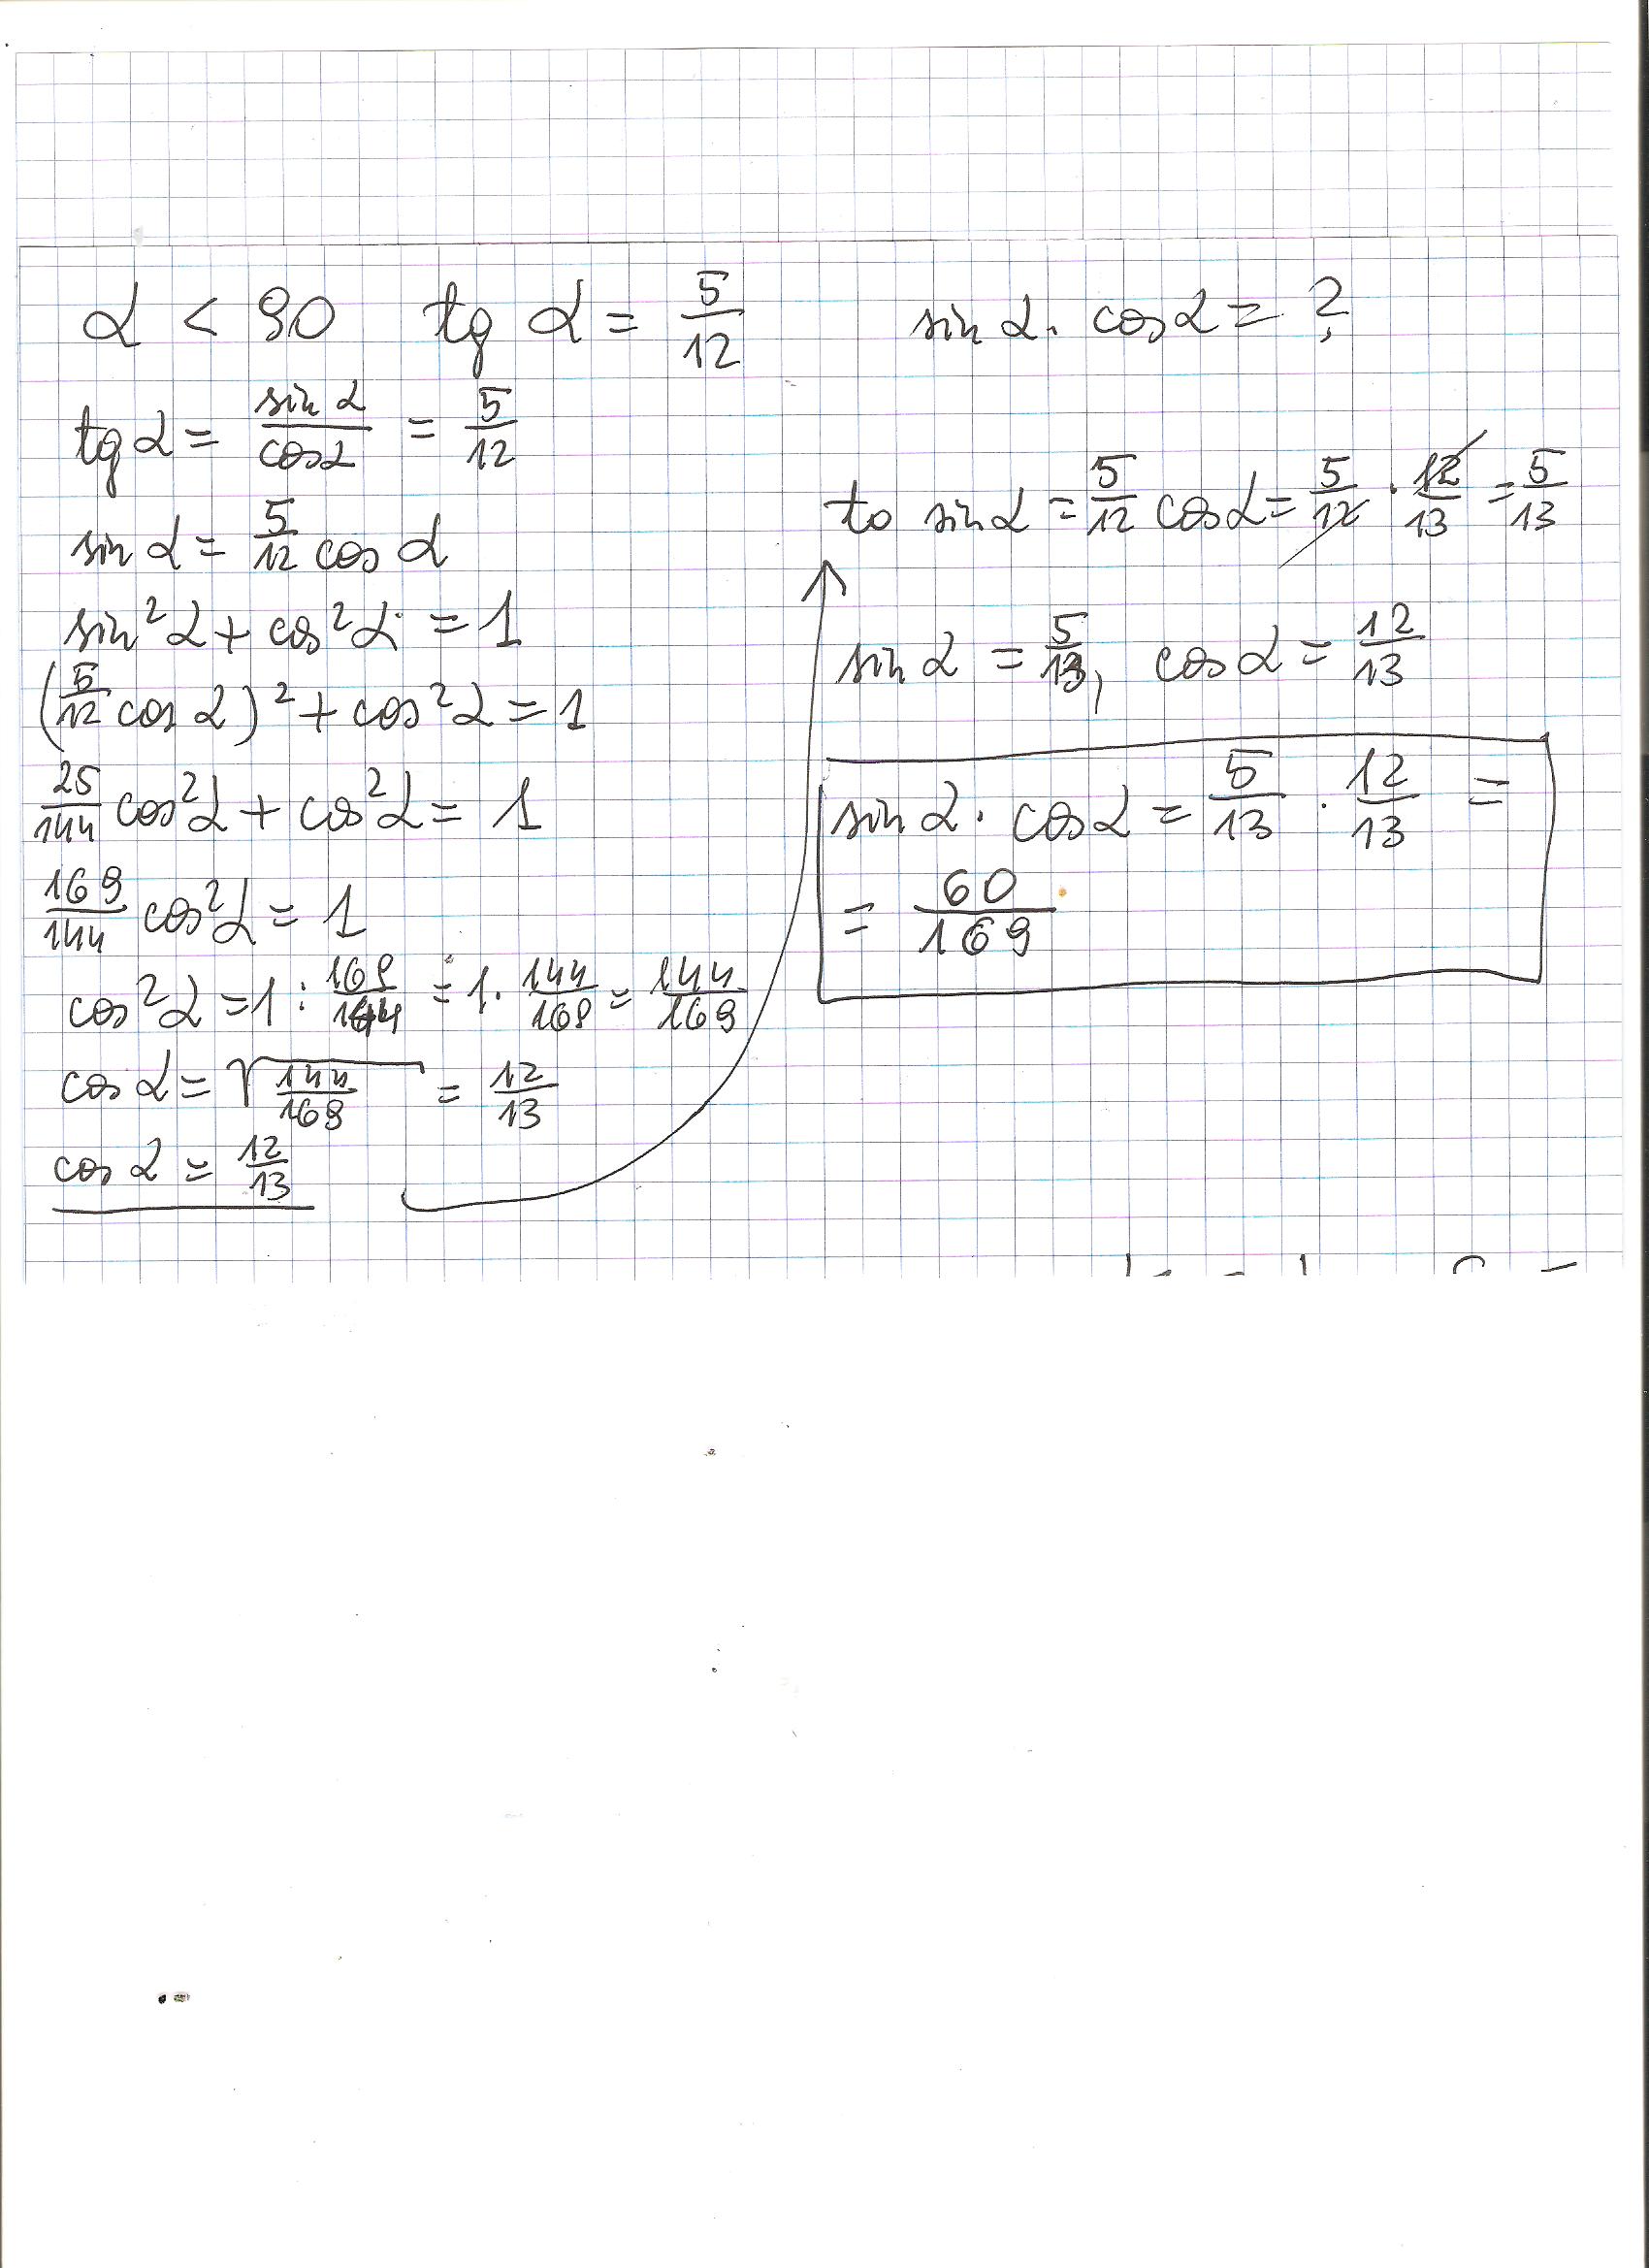 α < 90 tg α = 5/12 sin α · cos α = ?
tg α = sin α / cos α = 5/12
sin α = 5/12 cos α
sin² α + cos² α = 1
(5/12 cos α)² + cos² α = 1
25/144 cos² α + cos² α = 1
169/144 cos² α = 1
cos² α = 1 : 169/144 = 1 · 144/169 = 144/169
cos α = √(144/169) = 12/13
cos α = 12/13
to sin α = 5/12 cos α = 5/12 · 12/13 = 5/13
sin α = 5/13, cos α = 12/13
sin α · cos α = 5/13 · 12/13 =
= 60/169